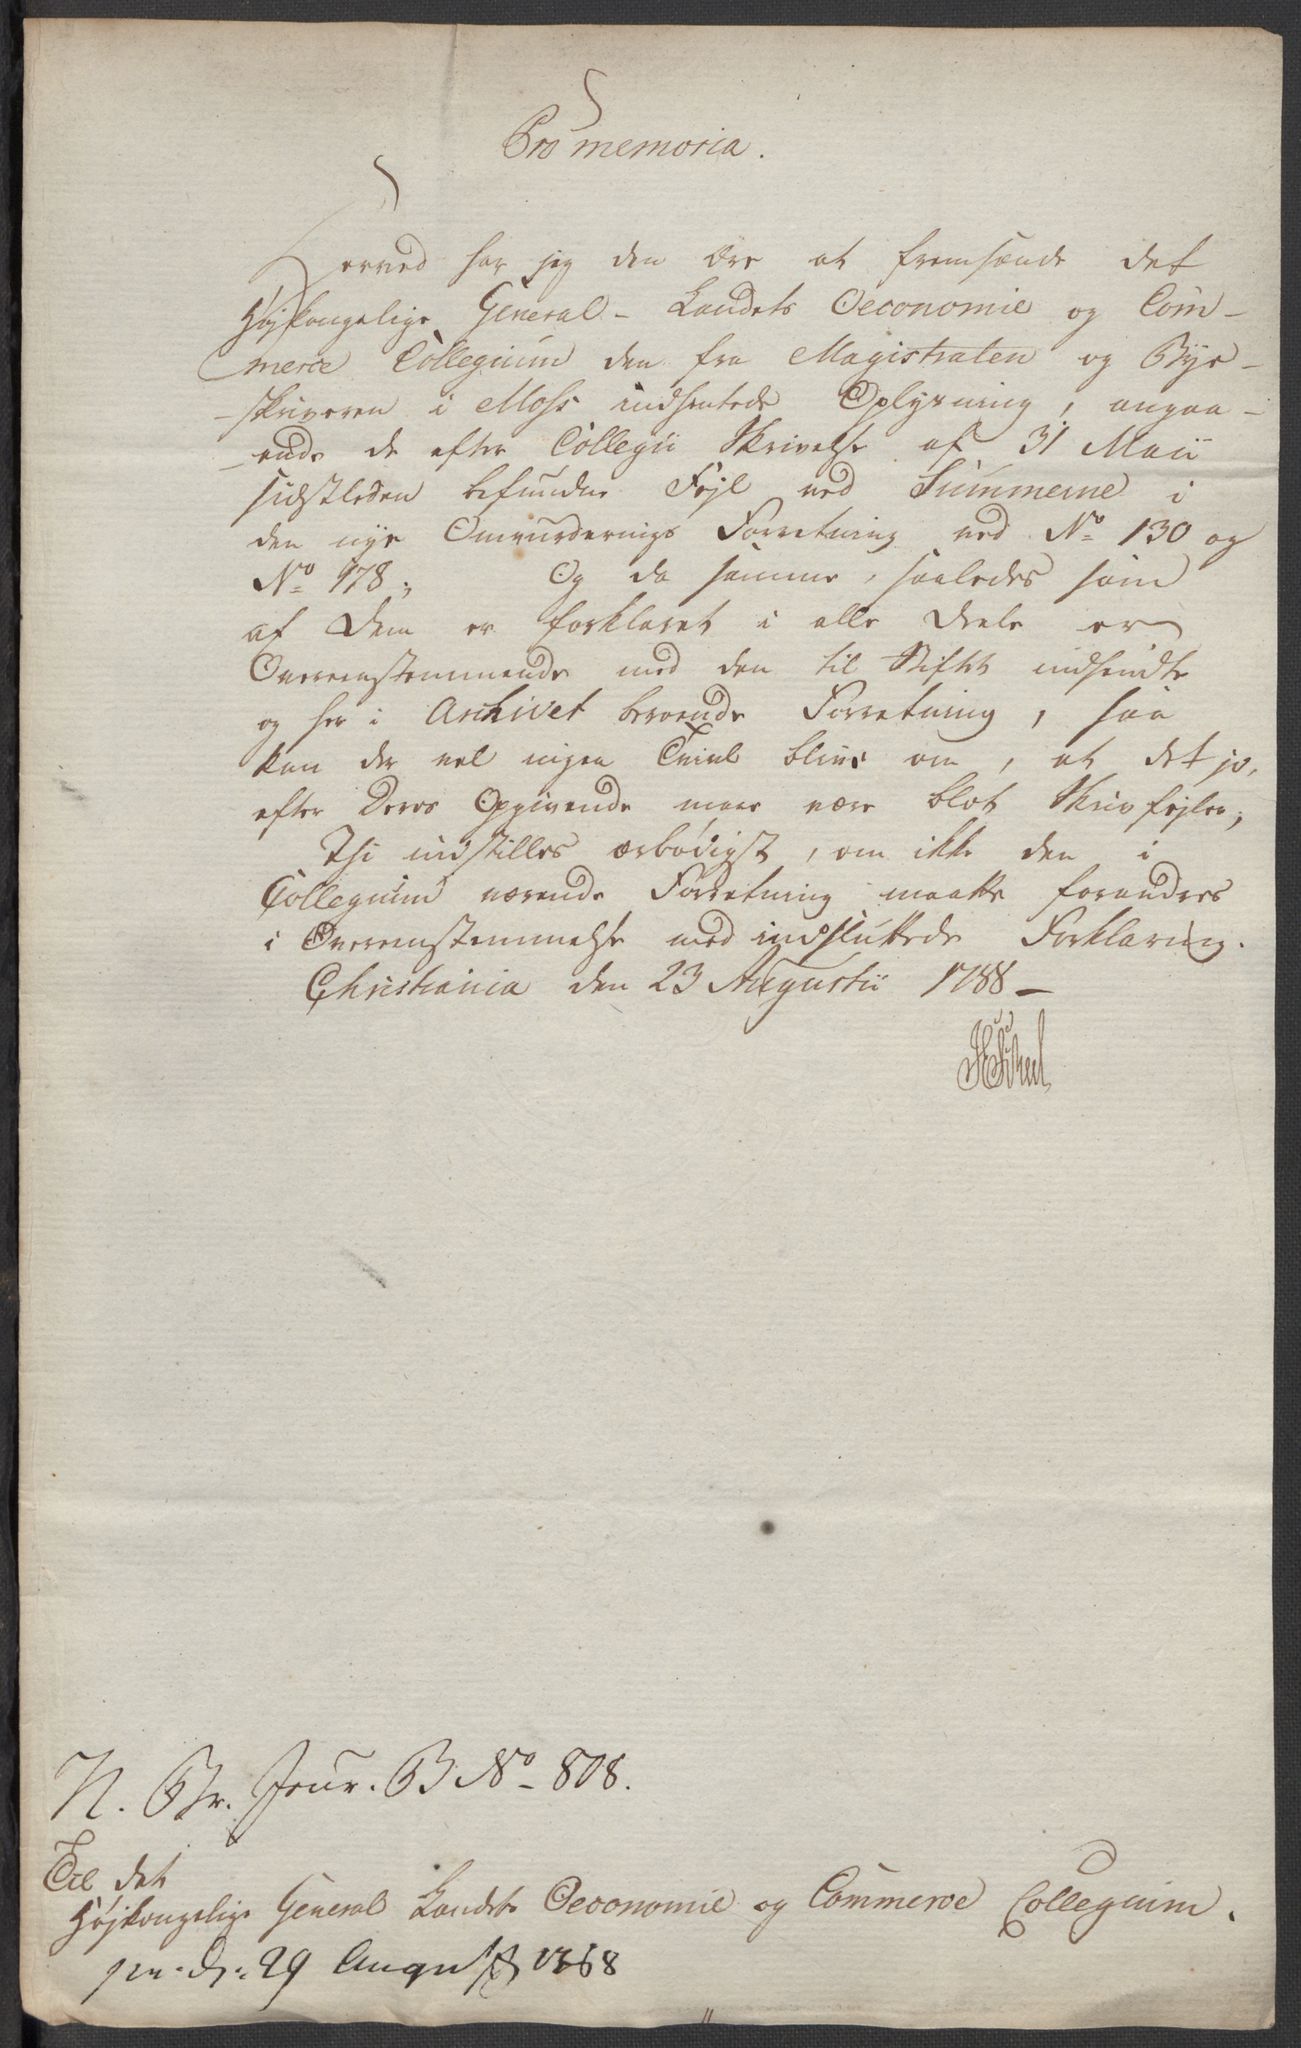 Pro memoria.
Herved har jeg den Ære at fremsænde det
Højkongelige General- Landets Oeconomie og Com-
merce Collegium den fra Magistraten og Bye-
-skriveren i Moss indhentede Oplysning, angaa-
-ende de efter Collegii Skrivelse af 31 Maii
sidstleden befundne Fejl ved Summerne i
den nye Omvurderings Forretning ved No 130 og
No 178; Og da samme, saaledes som
af dem er forklaret i alle Deele er
Overeenstemmende med den til Stiftet indsendte
og her i Archivet beroende Forretning, saa
kan der vel ingen Tvivl blive om, at det jo,
efter Deres Opgivende maae være blot Skrivfejler;
Thi indstilles ærbødigst, om ikke den i
Collegium værende Forretning maatte forandres
i Overeenstemmelse med indsluttede Forklaring.
Christiania den 23 Augustii 1788 -
N. Br. Jour. B No 808.
Til det
Højkongelige General Landets Oeconomie og Commerce Collegium.
pr. d: 29 August 1788